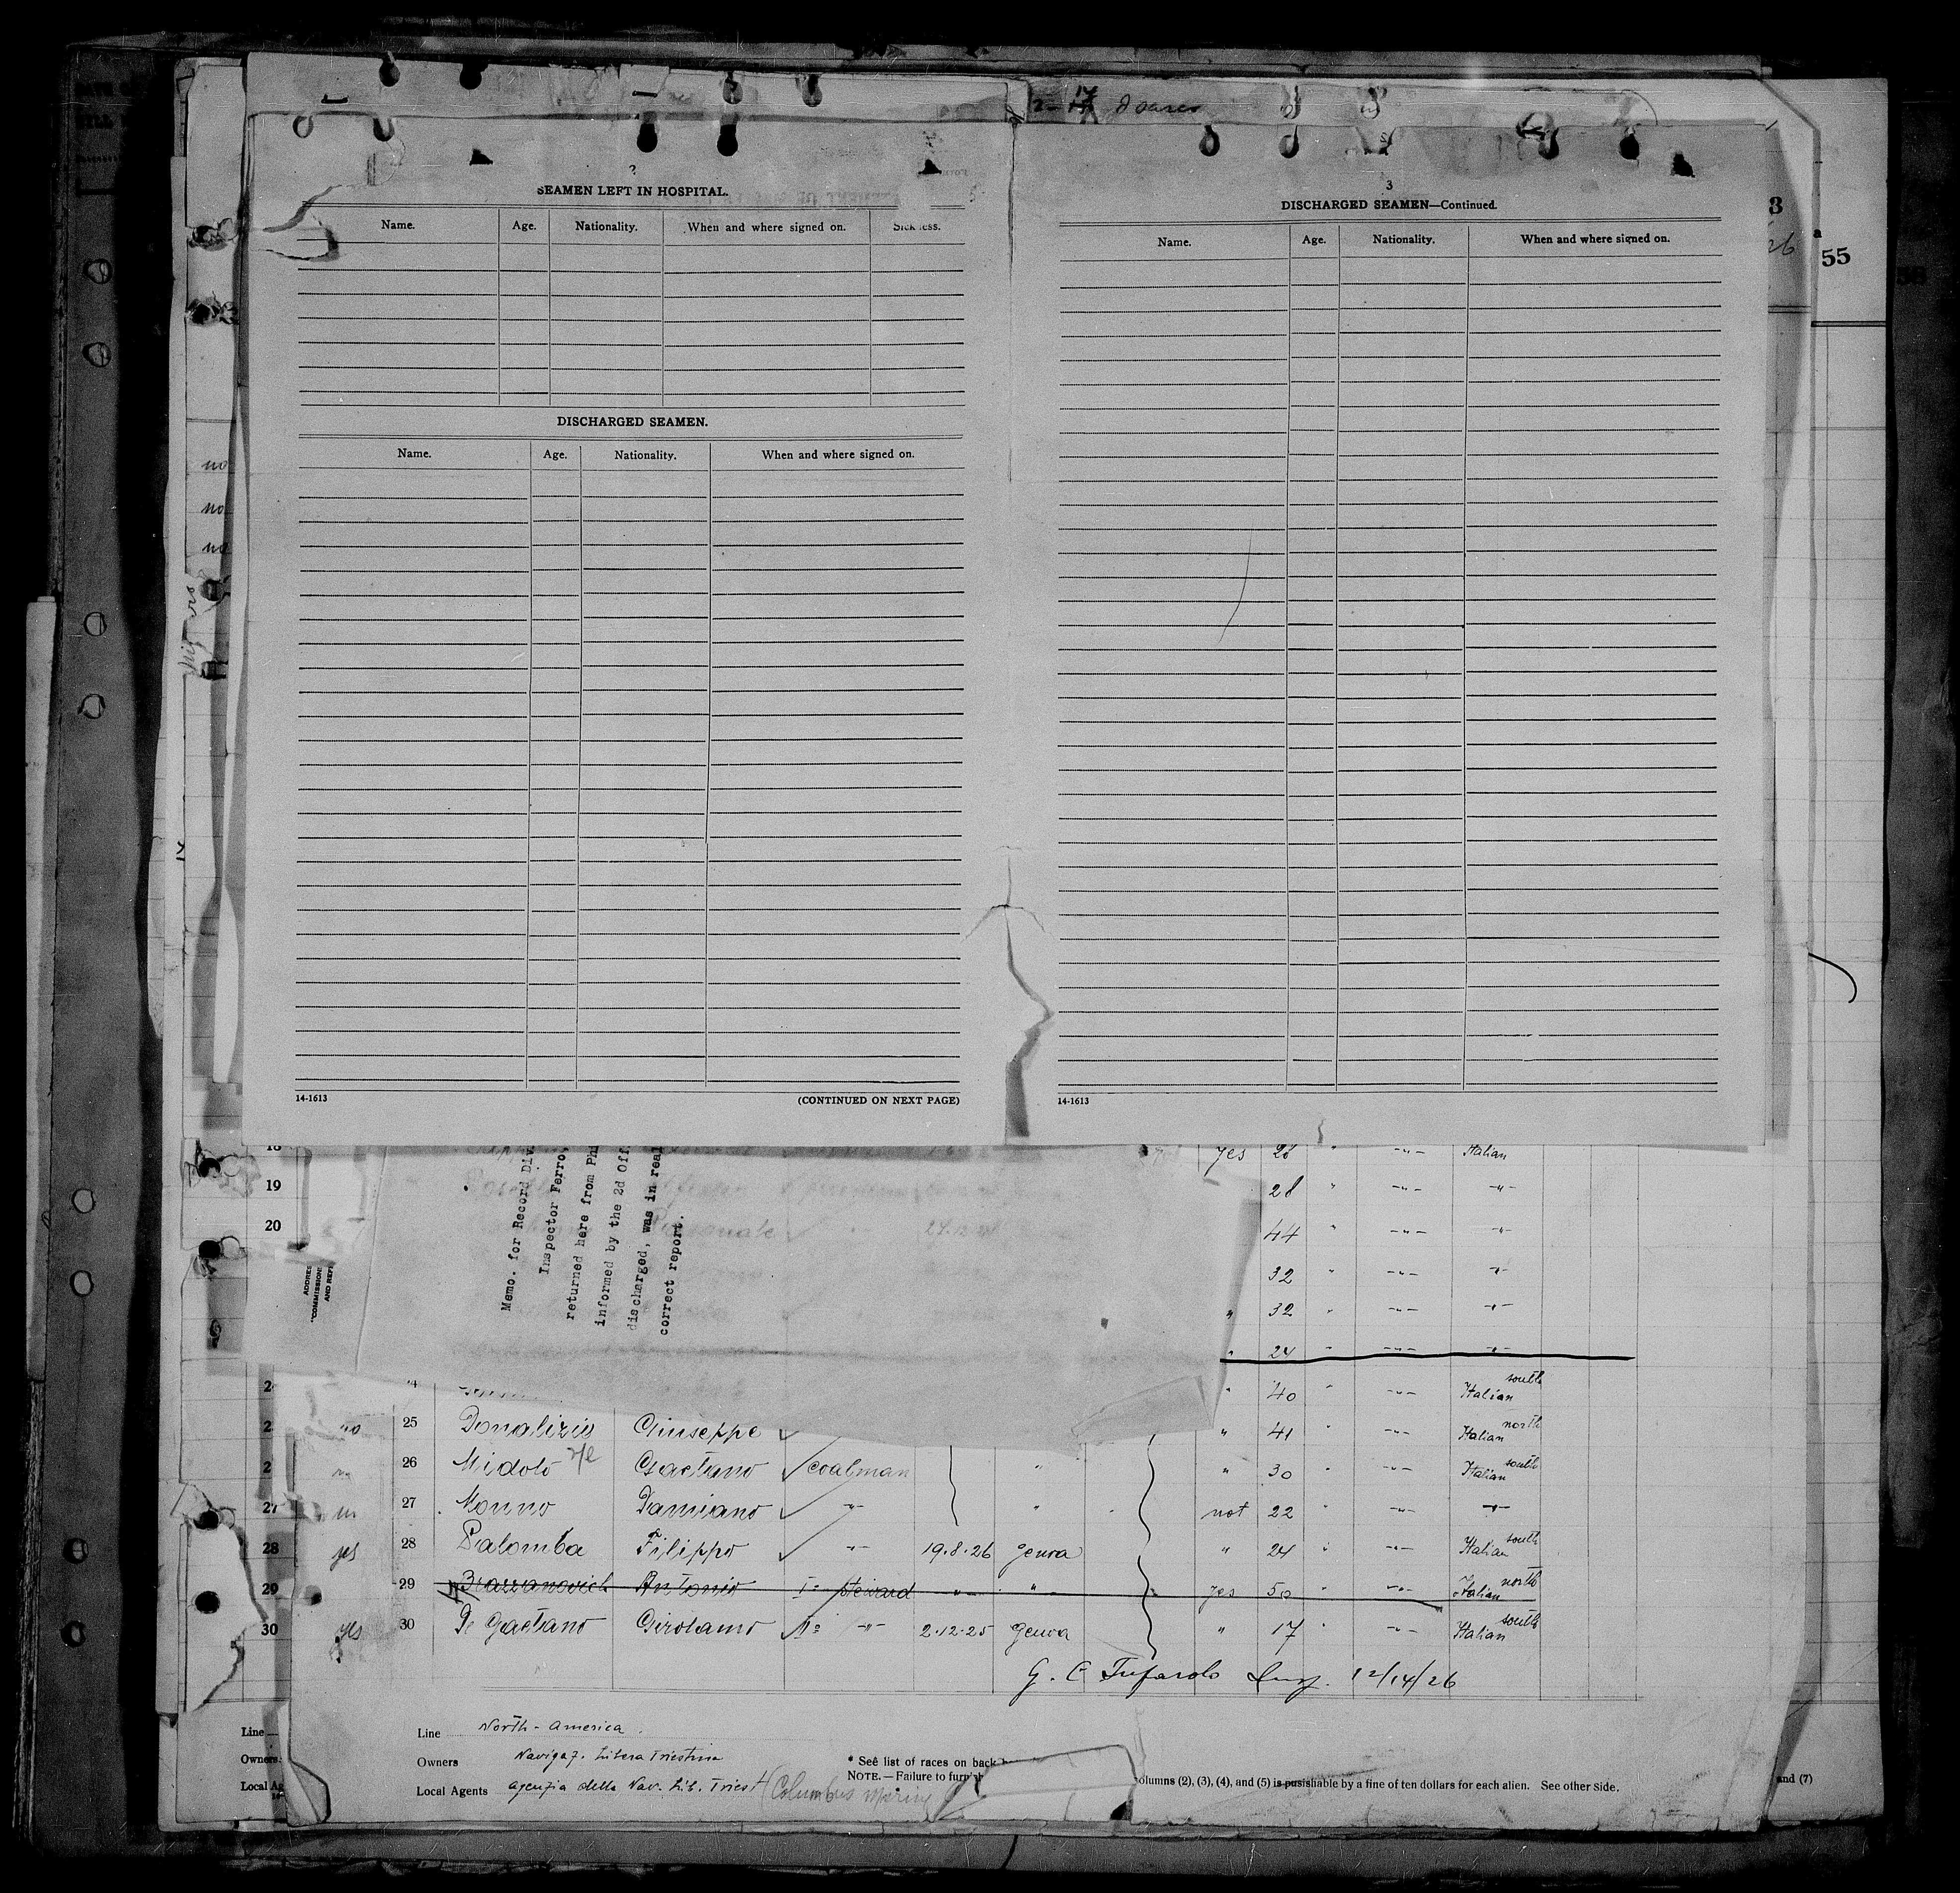 2
SEAMEN LEFT IN HOSPITAL.
Name. Age. Nationality. When and where signed on. Sickness.
DISCHARGED SEAMEN.
Name. Age. Nationality. When and where signed on.
14-1613 (CONTINUED ON NEXT PAGE)
3
DISCHARGED SEAMEN—Continued.
Name. Age. Nationality. When and where signed on.
14-1613
3
26
55
no
no
no
Memo. for Record Div
Inspector Ferro,
returned here from Ph
informed by the 2d Off
discharged, was in real
correct report.
yes 28 " -"- Italian
19 28 " -"- -"-
20 44 " -"- -"-
32 " -"- -"-
" 32 " -"- -"-
" 24 " -"- -"-
" 40 " -"- Italian south
no 25 Donalizio Giuseppe " 41 " -"- Italian north
26 Midolo Gaetano coalman " " 30 " -"- Italian south
27 27 Monno Damiano -"- " not 22 " -"- -"-
28 yes 28 Palomba Filippo -"- 19.8.26 genova " 24 " -"- Italian south
29 29 Brazzanovich Antonio I° steward -"- " yes 50 " -"- Italian north
30 yes 30 De Gaetano Girolamo II° -"- 2.12.25 genova " 17 " -"- Italian south
12/14/26
Line North-America
Owners Navigaz. Libera Triestina
Local Agents agenzia della Nav. Lib. Triest (Columbus
* See list of races on back
NOTE.—Failure to furnish
columns (2), (3), (4), and (5) is punishable by a fine of ten dollars for each alien. See other side.
Line
Owners
Local Ag
and (7)